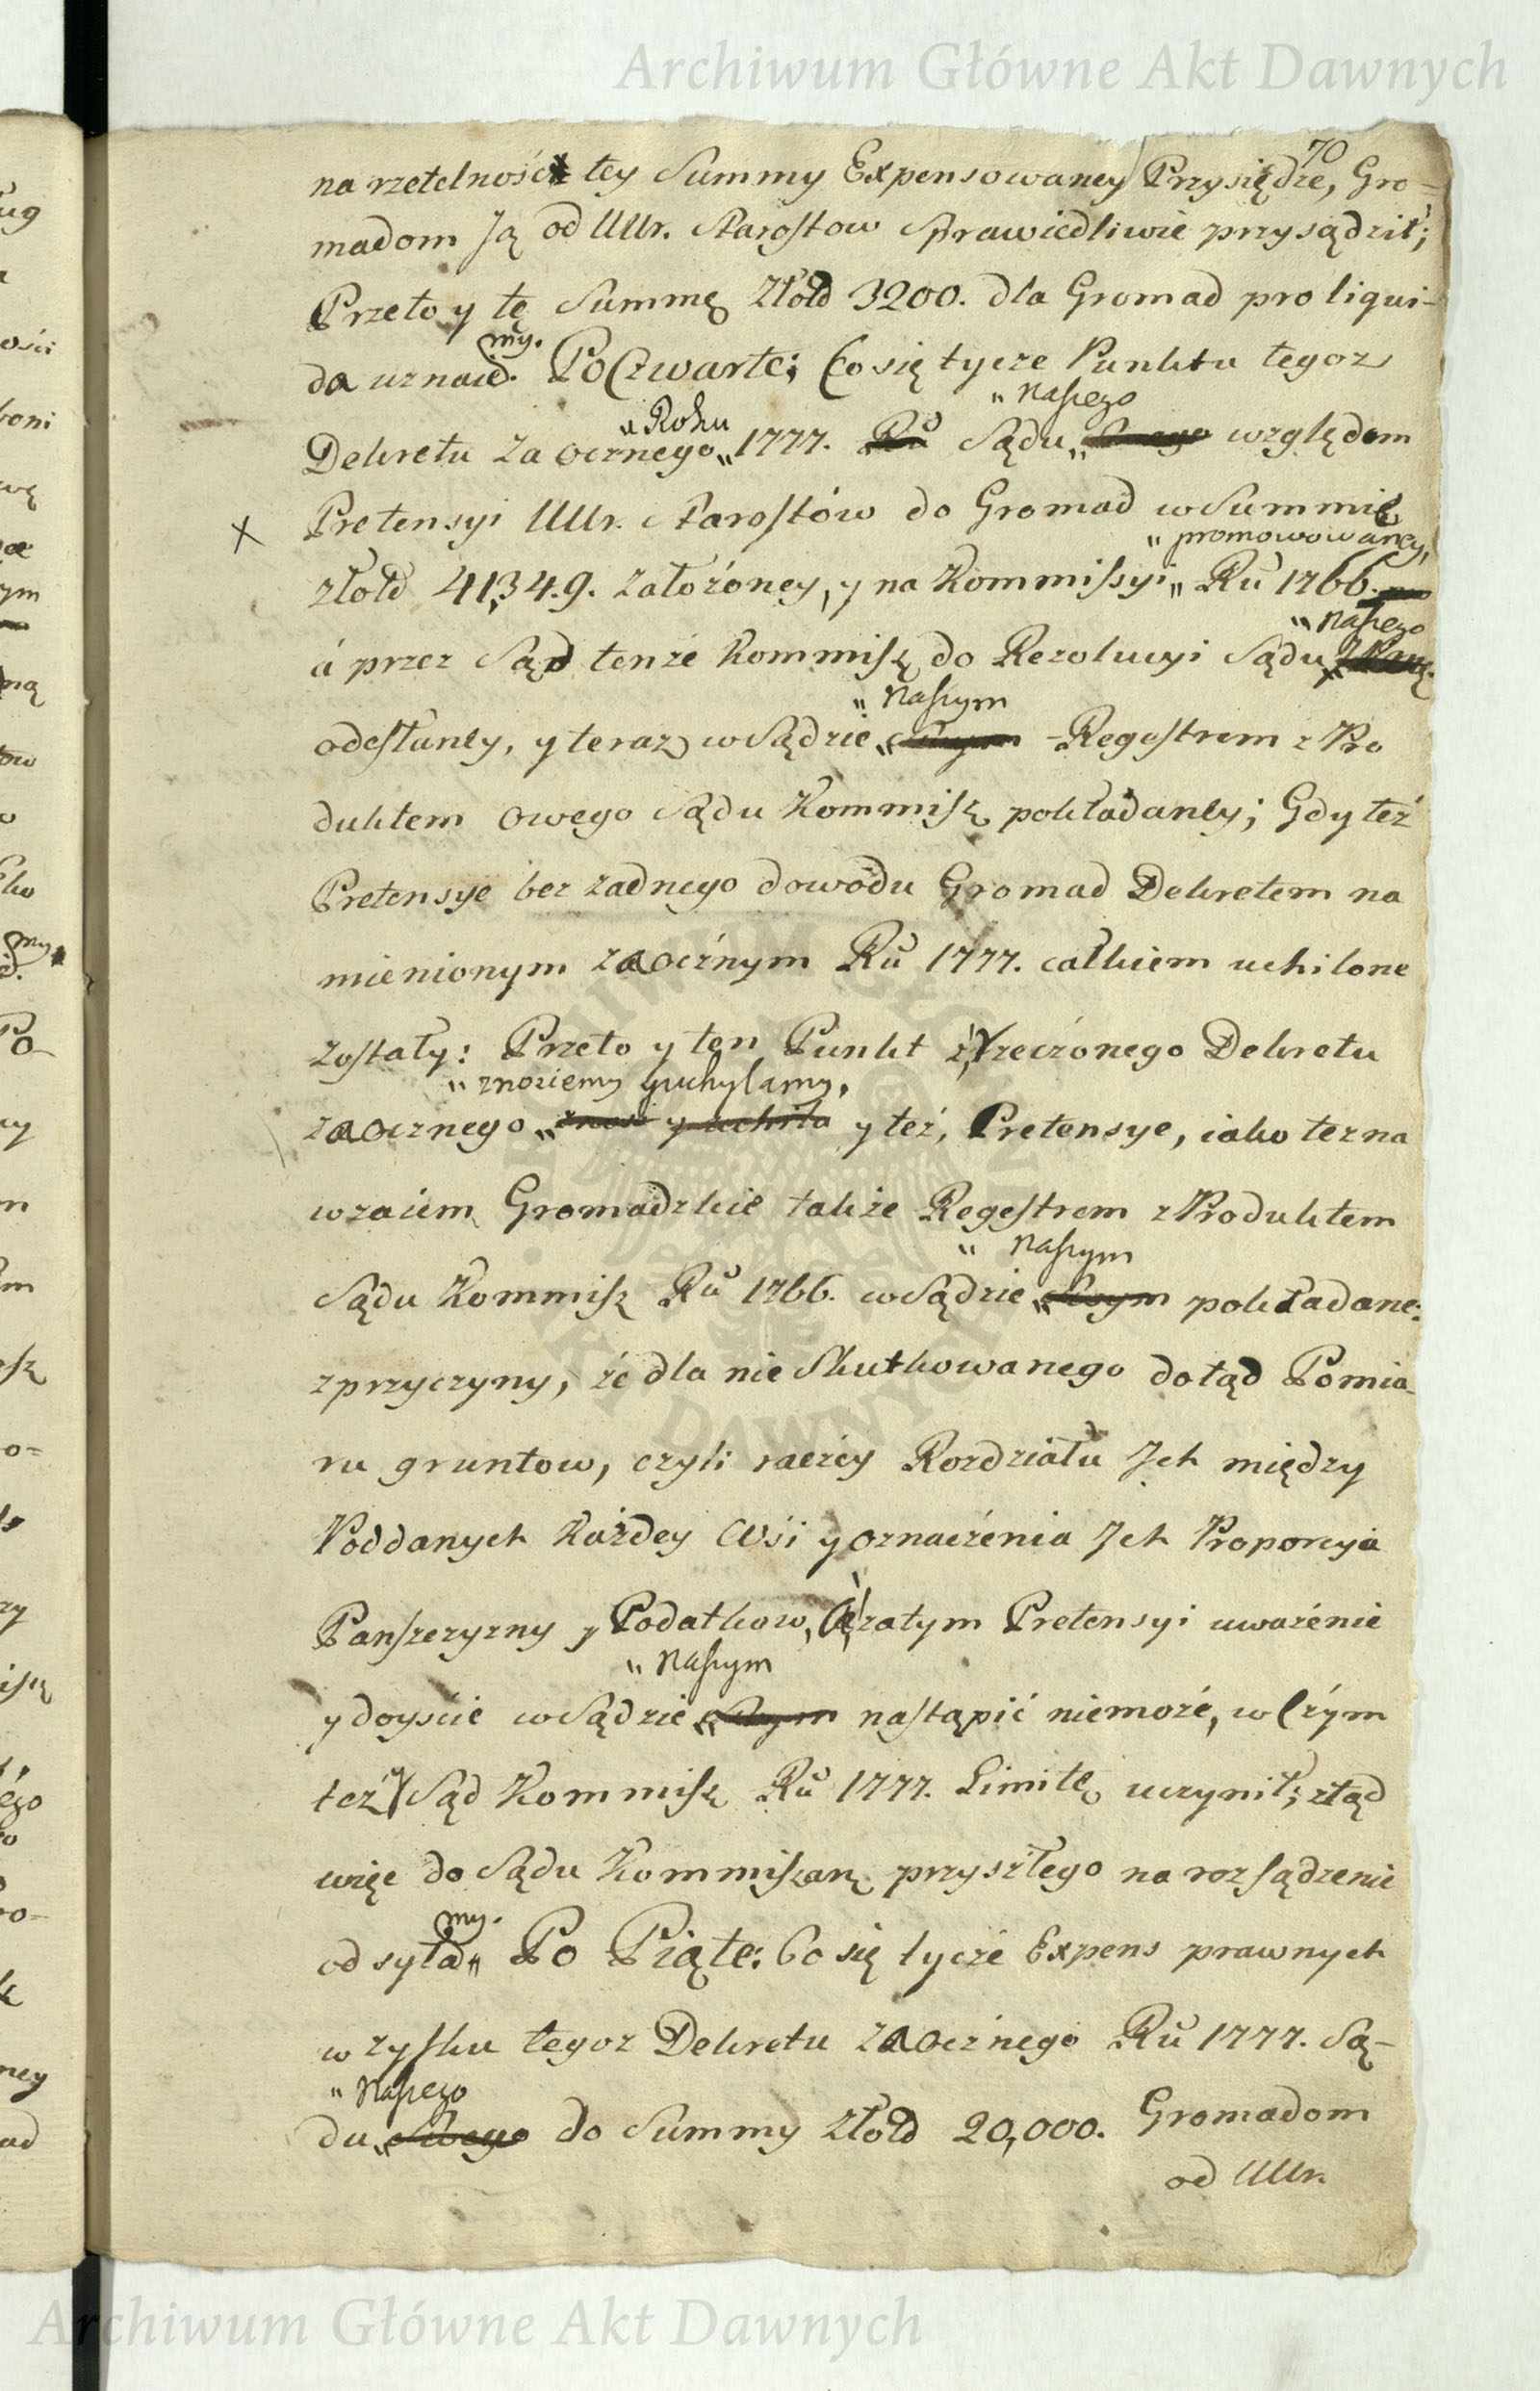 Archiwum Główne Akt Dawnych
70
na rzetelność tey Summy Expensowaney Przysiędze, Gro=
madom Ją od UUr. Starostow Sprawiedliwie przysądził;
Przeto y tę Summę Złotd 3200. dla Gromad pro liqui-
my.
da uznaie. Po Czwarte; Co się tycze Punktu tegoz
" Roku " naszego
Dekretu Zaocznego " 1777. Ru Sądu " Swego względem
x Pretensyi UUr. Starostów do Gromad w Summie
" promowowaney,
złotd 41,349. założoney, y na Kommissyi " Ru 1766.
" naszego
á przez Sąd tenże Kommisz do Rezolucyi Sądu
" naszym
odesłaney, y teraz w Sądzie " Swym Regestrem z Pro
duktem owego Sądu Kommisz pokładaney; Gdy też
Pretensye bez zadnego dowodu Gromad Dekretem na
mienionym zaocżnym Ru 1777. całkiem uchilone
zostały: Przeto y ten Punkt rzeczonego Dekretu
" znoziemy y uchylamy,
zaocznego " znosi y uchila y też, Pretensye, iako tez na
wzaiem Gromadzkie także Regestrem z Produktem
" naszym
Sądu Kommisz Ru 1766. w Sądzie " Swym pokładane:
z przyczyny, że dla nie Skutkowanego dotąd Pomia-
ru gruntow, czyli raczey Rozdziału Jch między
Poddanych Każdey Wśi y oznaczenia Jch Proporcyą
Panszczyzny y Podatkow, á zatym Pretensyi uważenie
" naszym
y doyście w Sądzie " Swym nastąpić niemoże, w Czym
też y Sąd Kommisz Ru 1777. Limitę uczynił; ztąd
więc do Sądu Kommiszarz przyszłego na rozsądzenie
my.
odsyła " Po Piąte: Co się tycze Expens prawnych
w zysku tegoz Dekretu zaocznego Ru 1777. Są-
" naszego
du " Swego do Summy Złotd 20,000. Gromadom
od UUr.
Archiwum Główne Akt Dawnych